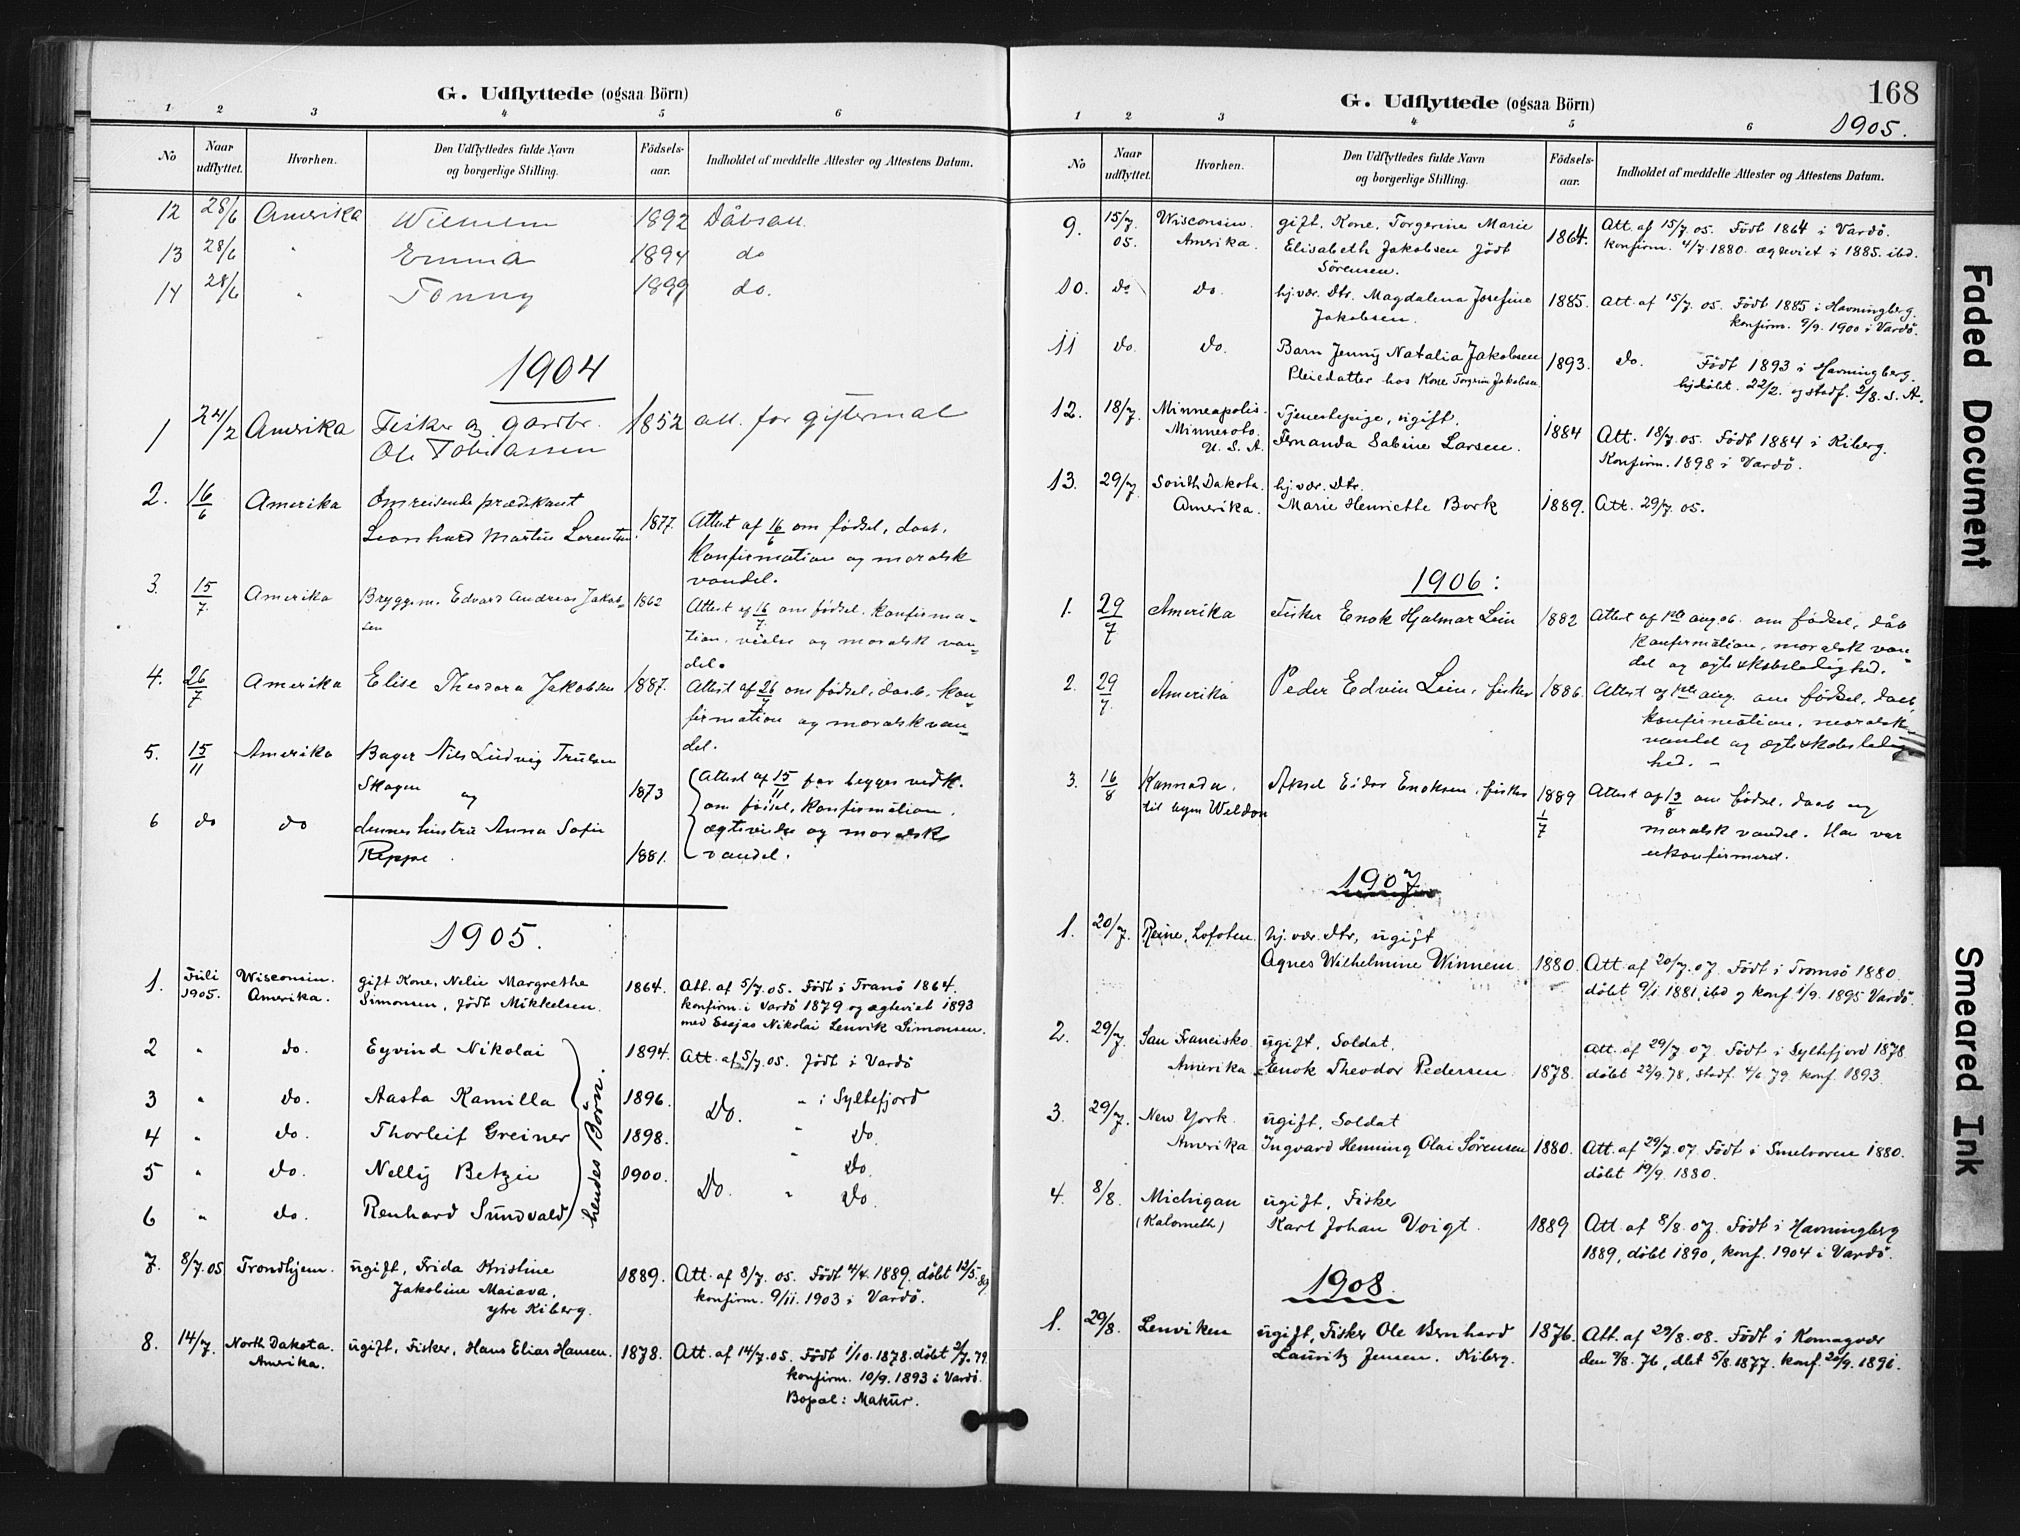 G. Udflyttede (ogsaa Börn)
1 2 3 4 5 6
No Naar udflyttet. Hvorhen. Den Udflyttedes fulde Navn og borgerlige Stilling. Födsels-aar. Indholdet af meddelte Attester og Attestens Datum.
12 28/6 Amerika 1892 Dåbsatt.
13 28/6 " Emma 1894 do
14 28/6 " Tonny 1899 do.
1904
1 24/2 Amerika Fisker og gardbr. 1852 att. for giftermal
Ole Tobiassen
2. 16/6 Amerika Omreisende prædikant
Leonhard Martin Lorentsen 1877. Attest af 16/6 om fødsel, daab,
konfirmation og moralsk
vandel.
3. 15/7. Amerika Bryggem. Edvard Andreas Jakob- 1862 Attest af 16/7. om fødsel, konfirma-
sen tion, vielse og moralsk van-
del.
4. 26/7 Amerika Elise Theodora Jakobsen 1887. Attest af 26/7 om fødsel, daab, kon-
firmation og moralsk van-
del.
5. 15/11 Amerika Bager Nils Ludvig Trulsen
Skogen og 1873 Attest af 15/11 for begges vedk.
om fødsel, konfirmation,
6 do do dennes hustru Anna Sofie ægtevielse og moralsk
Reppe. 1881. vandel.
1905.
1. Juli 1905. Wisconsin. Amerika. gift Kone, Nelie Margrethe 1864. Att. af 5/7.05. Födt i Tranö 1864.
Simonsen, födt Mikkelsen. konfirm. i Vardö 1879 og ægteviet 1893
med Esajas Nikolai Lenvik Simonsen.
2 " do. Eyvind Nikolai 1894. Att. af 5/7.05. födt i Vardö
3 " do. Aasta Kamilla 1896. Do. " i Syltefjord
4 " do. Thorleif Greiner 1898. " do.
5 " do. Nelly Betzie 1900. " Do.
6 " do. Renhard Sundvald Do. " Do
hendes Börn.
7. 8/7.05 Trondhjem. ugift, Frida Kristine 1889. Att. af 8/7.05. Födt 4/4.1889. döbt 12/5.89.
Jakobine Maiava, konfirm. 9/11.1903 i Vardö.
ytre Kiberg.
8. 14/7. North Dakota. Amerika. ugift, Fisker, Hans Elias Hansen. 1878. Att. af 14/7.05. Födt 1/10.1878. döbt 2/7.79.
konfirm. 10/9.1893 i Vardö.
Bopæl: Makur.
168
G. Udflyttede (ogsaa Börn)
1905.
1 2 3 4 5 6
No Naar udflyttet. Hvorhen. Den Udflyttedes fulde Navn og borgerlige Stilling. Födsels-aar. Indholdet af meddelte Attester og Attestens Datum.
9. 15/7 05. Wisconsin. Amerika. gift, Kone, Torgerine Marie 1864. Att. af 15/7.05. Födt 1864 i Vardö.
Elisabeth Jakobsen födt konfirm. 4/7.1880. ægteviet i 1885. ibd.
Sörensen.
10. do do. hj.vær. Dtr. Magdalena Josefine 1885. Att. af 15/7.05. Födt 1885 i Havningberg.
Jakobsen. konfirm. 9/9.1900 i Vardö.
11 do. do. Barn Jenny Natalia Jakobsen 1893. Do. Födt 1893 i Havningberg.
Pleiedatter hos Kone Torgerin Jakobsen hj.döbt. 22/2. og stadf. 2/8. s. A.
12. 18/7. Minneapolis. Minnesota. U. S. A. Tjenestepige, ugift. 1884
Fernanda Sabine Larsen. Att. 18/7.05. Födt 1884 i Kiberg.
Konfirm. 1898 i Vardö.
13. 29/7. South Dakota. Amerika. hj.vær. Dtr.
Marie Henriette Bork 1889. Att. 29/7.05.
1906:
1. 29/7 Amerika Fisker Enok Hjalmar Lein 1882 Attest af 1ste aug. 06. om fødsel, dåb
konfirmation, moralsk van-
del og ægteskabsledighed.
2. 29/7. Amerika Peder Edvin Lein, fisker 1886. Attest af 1ste aug. om fødsel, daab,
konfirmation, moralsk
vandel og ægteskabsledig-
hed. -
3. 16/8 Kannada. til byen Weldon Aksel Eidor Enoksen, fisker 1889 1/7 Attest af 13/8 om fødsel, daab og
moralsk vandel. Han var
ukonfirmeret.
1907
1. 20/7. Reine, Lofoten. hj.vær. Dtr, ugift
Agnes Wilhelmine Winnem. 1880. Att. af 20/7.07. Födt i Tromsö 1880.
döbt 9/1.1881, ibd og konf. 1/9.1895 Vardö.
2. 29/7. San Francisko. Amerika ugift, Soldat. Att. af 29/7.07. Födt i Syltefjord 1878.
Enok Theodor Pedersen 1878. döbt 22/9.78, stadf. 4/6.79. konf. 1893.
3. 29/7. New York. Amerika ugift, Soldat
Ingvard Henning Olai Sörensen 1880. Att. af 29/7.07. Födt i Smelroren 1880.
döbt 19/9.1880.
4. 8/8. Michigan (Kalometh) ugift, Fisker
Karl Johan Voigt. 1889. Att. af 8/8.07. Födt i Havningberg
1889, döbt 1890, konf. 1904 i Vardö.
1908.
1. 29/8. Lenviken ugift, Fisker Ole Bernhard 1876. Att. af 29/8.08. Födt i Komagvær
Lauritz Jensen. Kiberg. den 9/8.76, dbt 5/8.1877. konf. 20/9.1891.
Faded Document
Smeared Ink